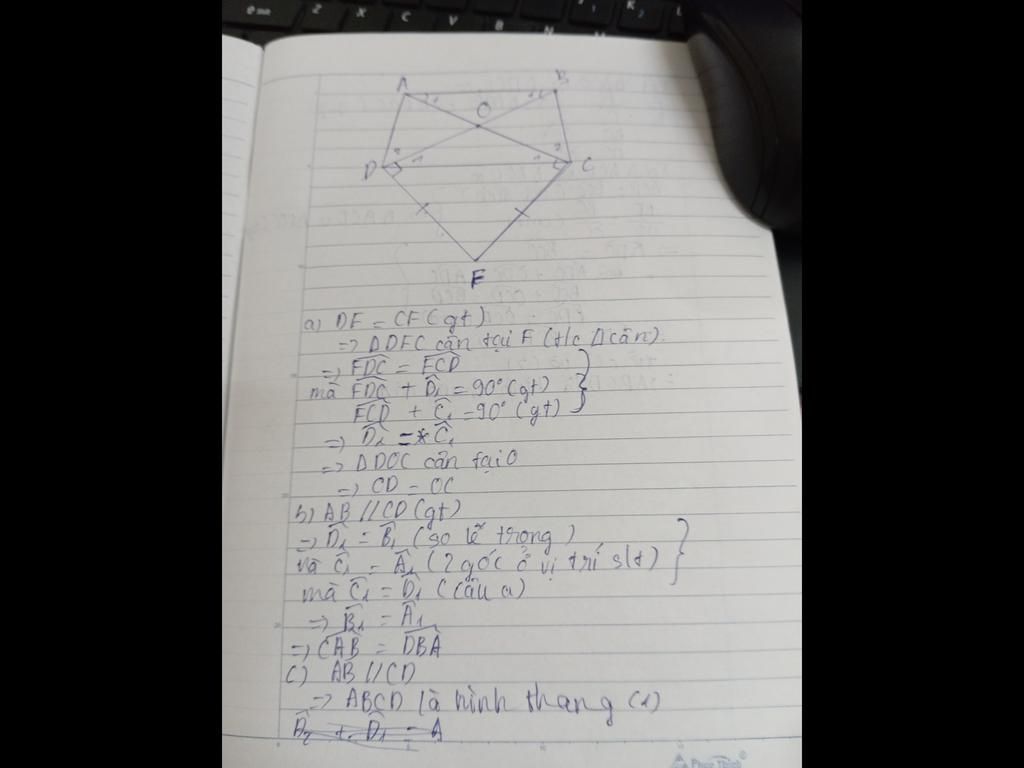 A
B
O
D
C
F
a) DF = CF (gt)
=> ΔDFC cân tại F (t/c Δcân).
=> FDC = FCD
mà FDC + D1 = 90° (gt)
FCD + C1 = 90° (gt)
=> D1 = C1
=> ΔDOC cân tại O
=> CD = OC
b) AB // CD (gt)
=> D1 = B1 (so lẽ trong)
và C1 = A1 (2 góc ở vị trí slt)
mà C1 = D1 (câu a)
=> B1 = A1
=> CAB = DBA
c) AB // CD
=> ABCD là hình thang (1)
D2 + D1 = A